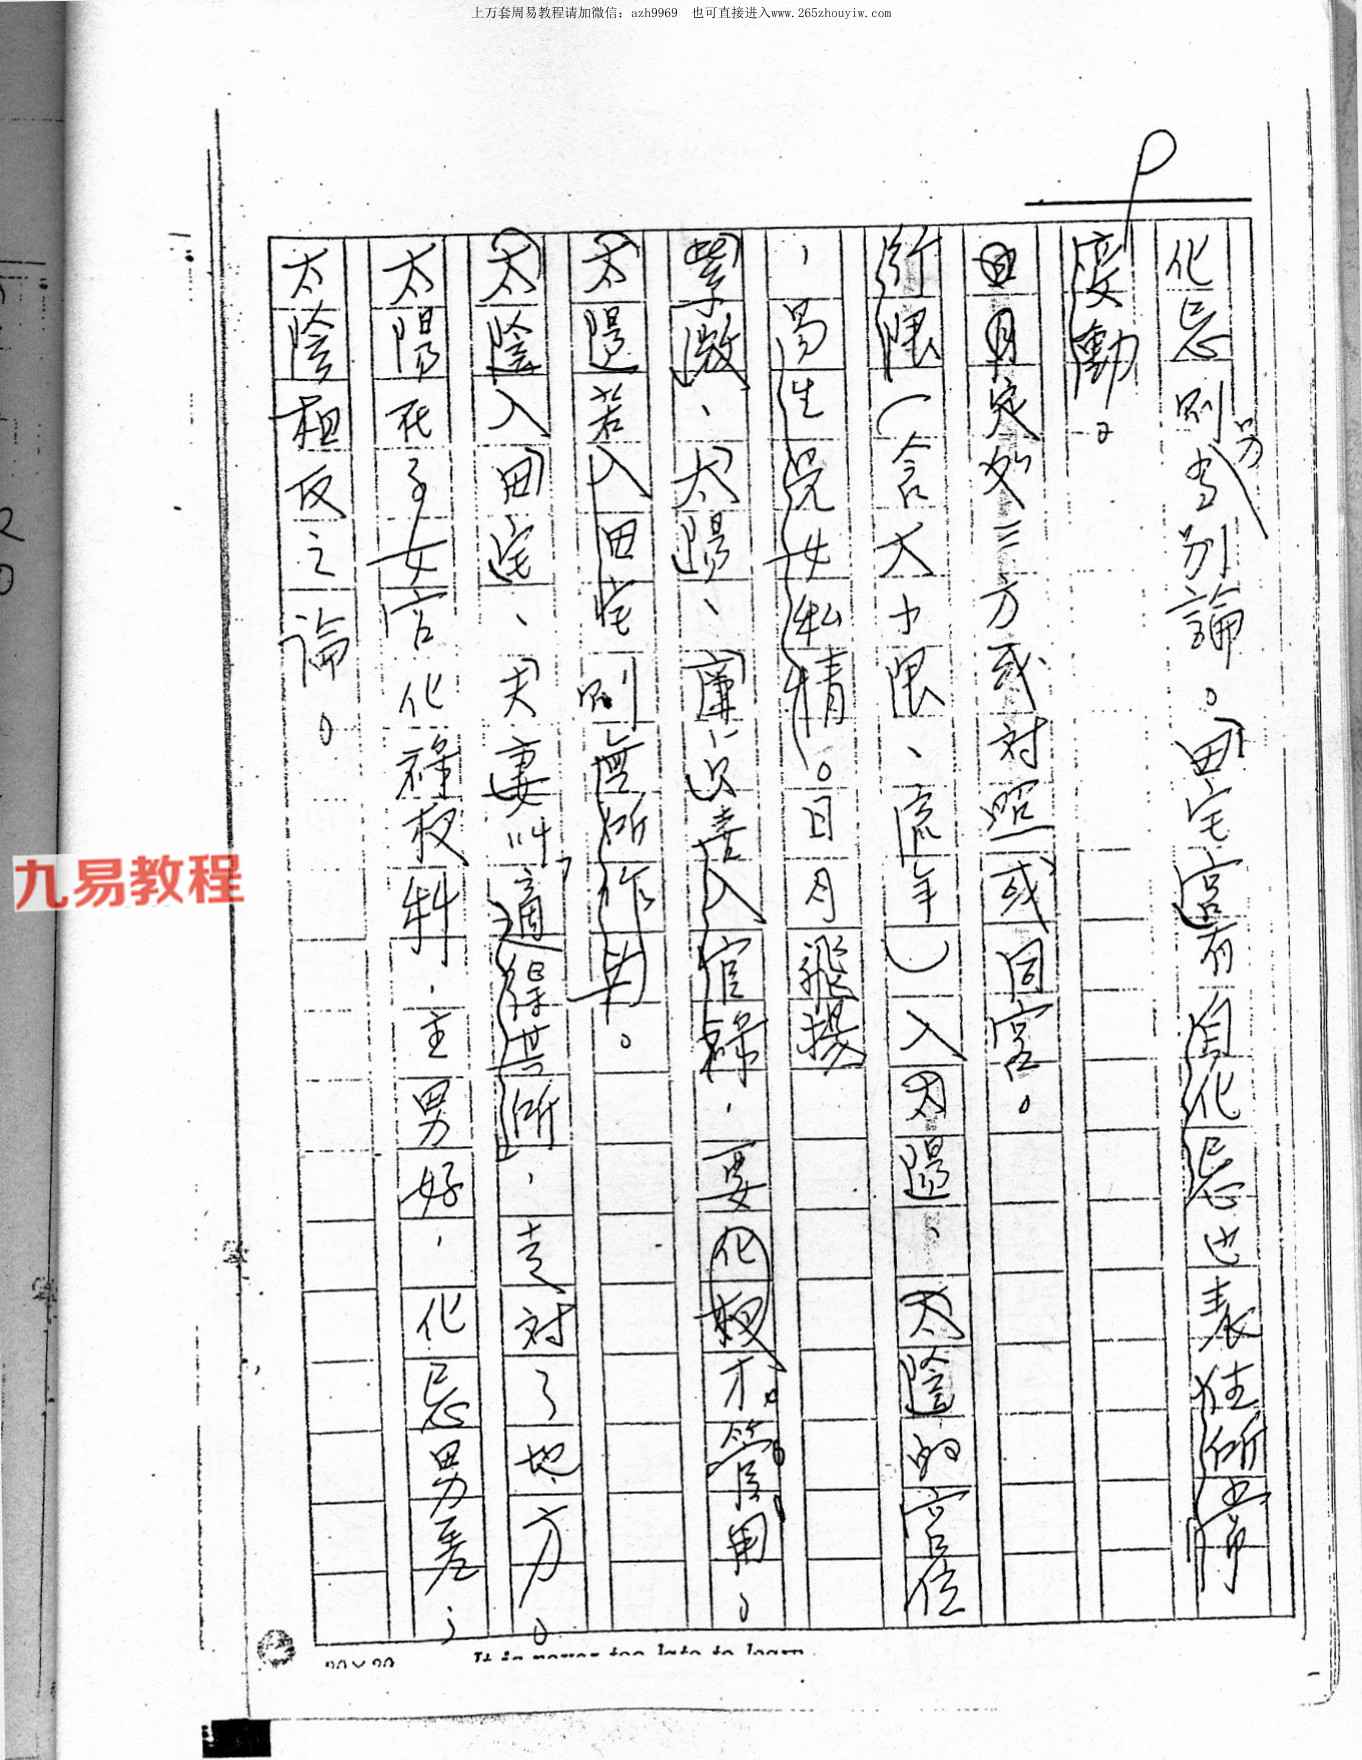 上万套周易教程请加微信：azh9969 也可直接进入www.265zhouyiw.com
化忌則另當別論。田宅宮有自化忌也表住所常
變動。
日月定必三方或对照或同宮。
行限（含大小限、流年）入太陽、太陰的宮位
，易生兒女私情。日月飛揚
紫微、太陽、廉只喜入官祿，要化权才管用。
太陽若入田宅則無所作為。
太陰入田宅、夫妻叫適得其所，走对了地方。
太陽在子女宮化祿权科，主男好，化忌男差；
太陰相反之論。
九易教程
20×20 It is never too late to learn